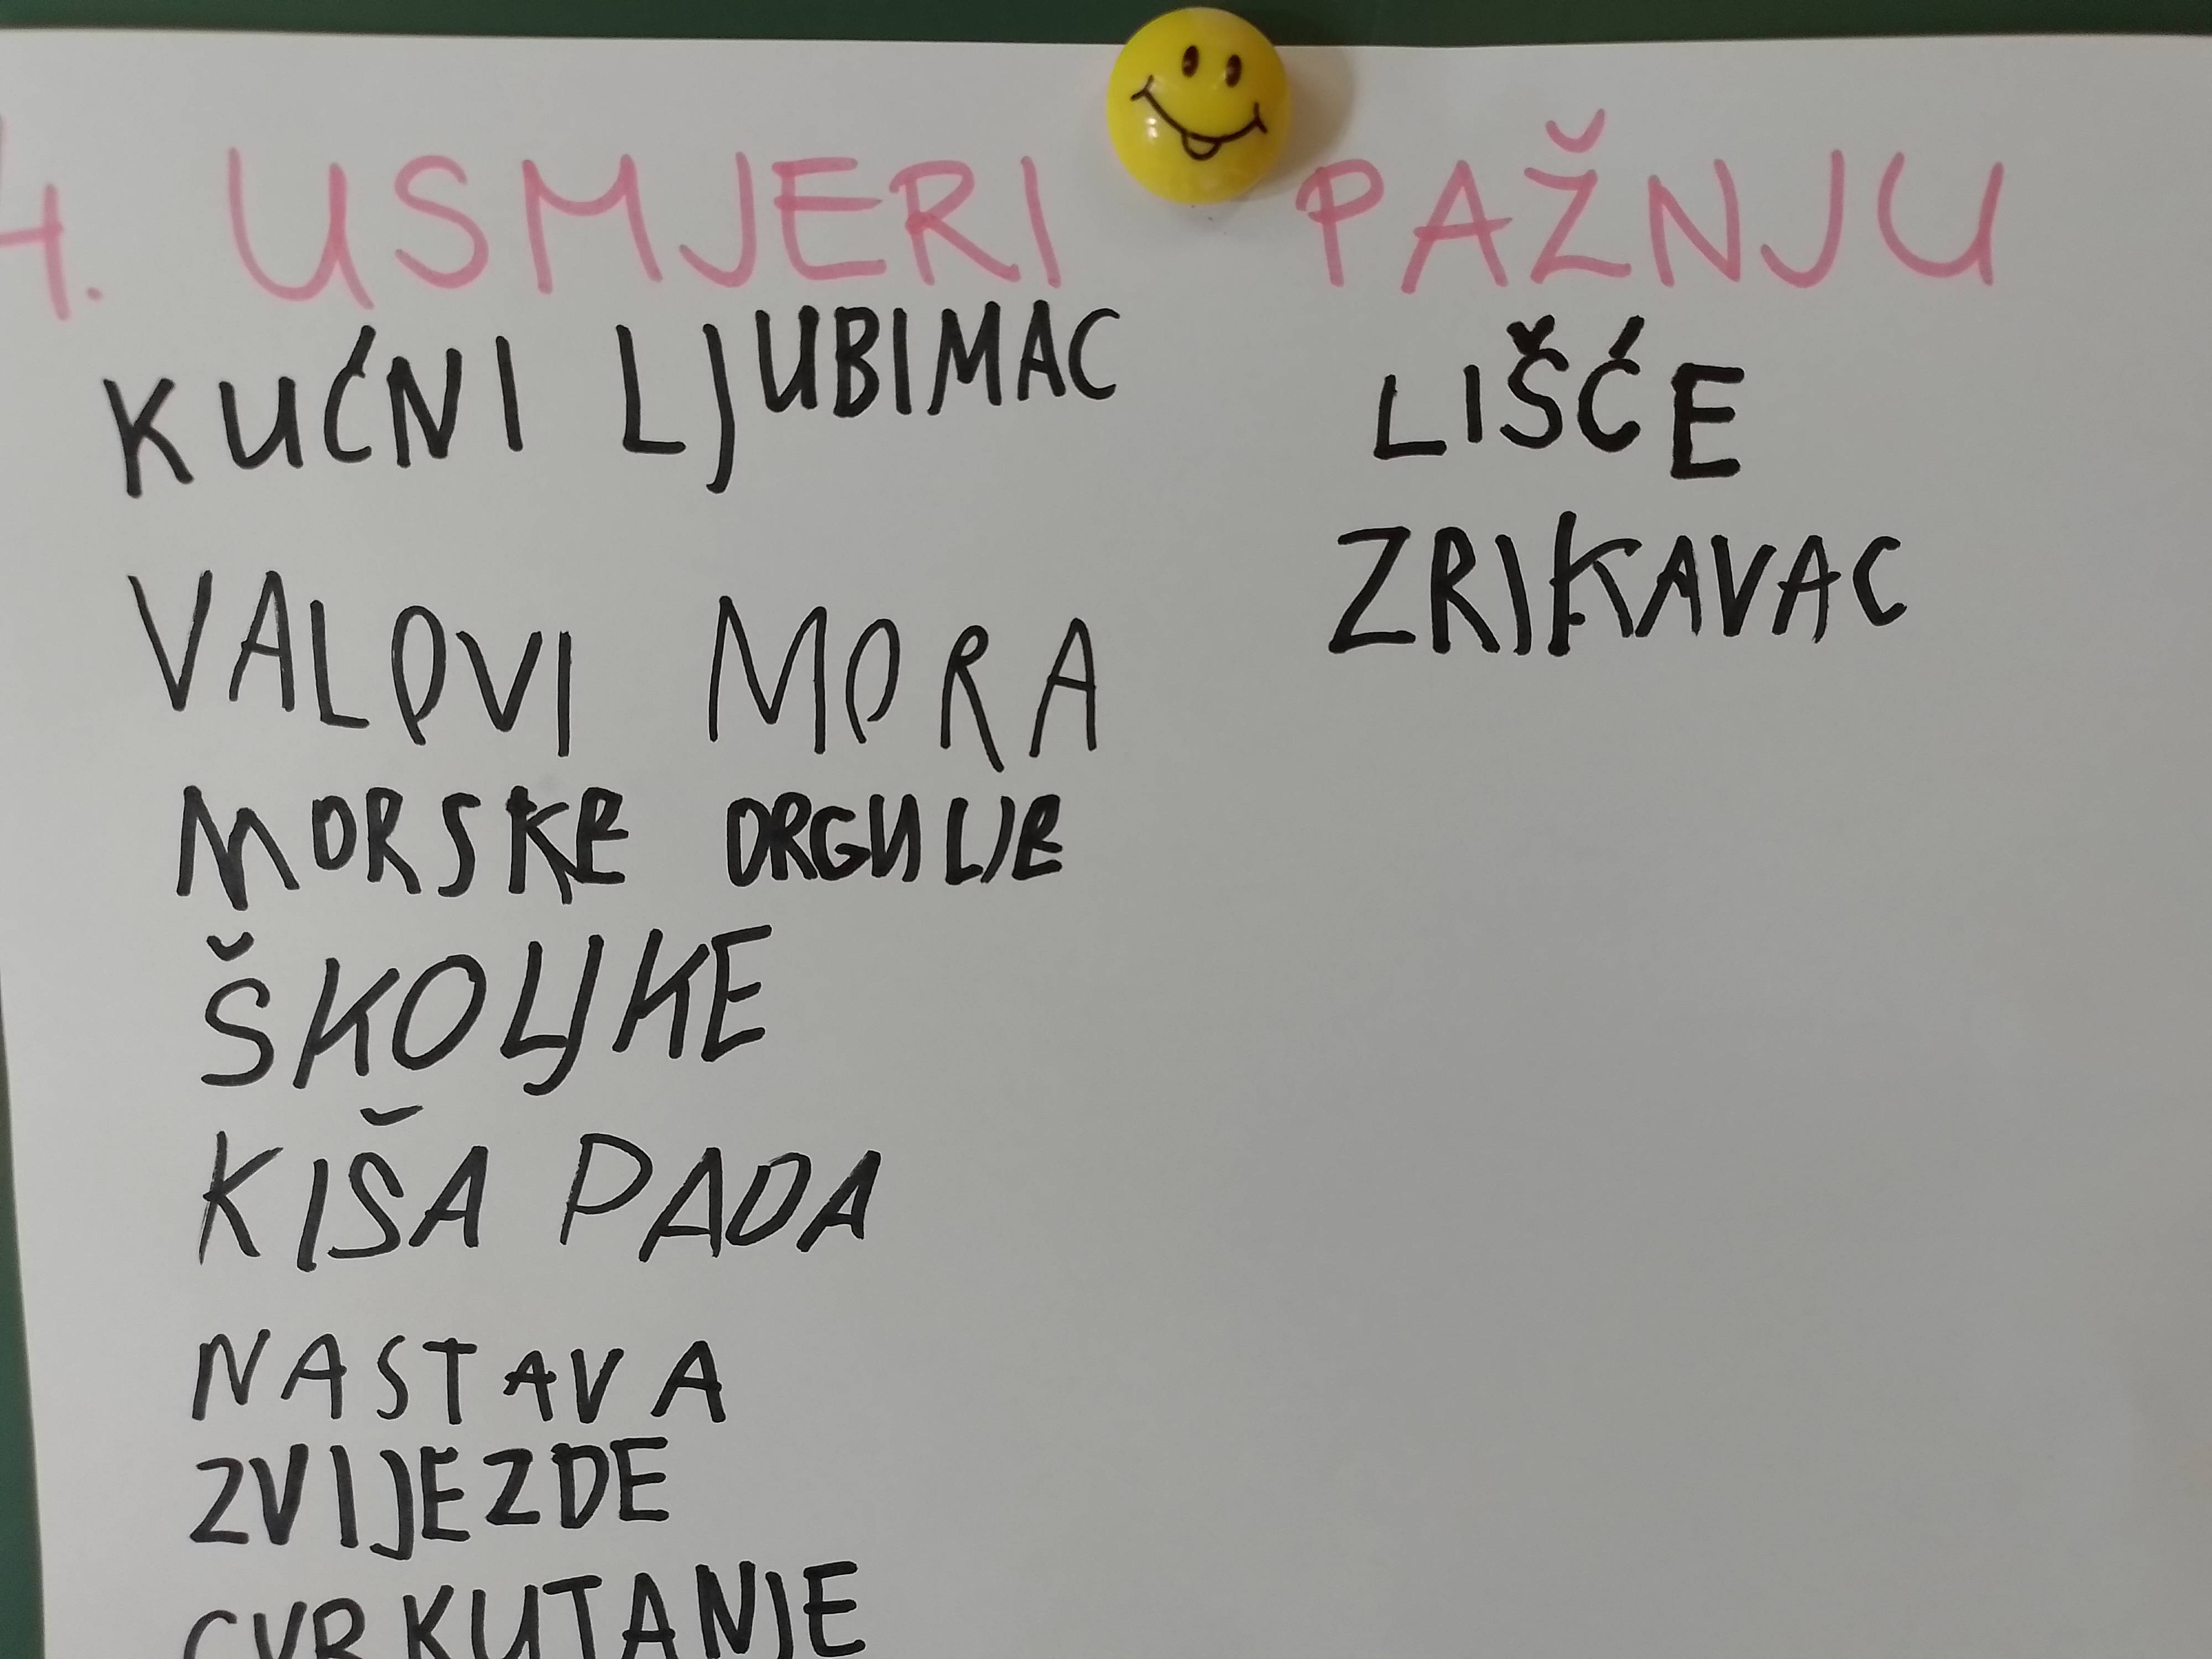 4. USMJERI PAŽNJU
KUĆNI LJUBIMAC
VALOVI MORA
MORSKE ORGULJE
ŠKOLJKE
KIŠA PADA
NASTAVA
ZVIJEZDE
CVRKUTANJE
LIŠĆE
ZRIKAVAC